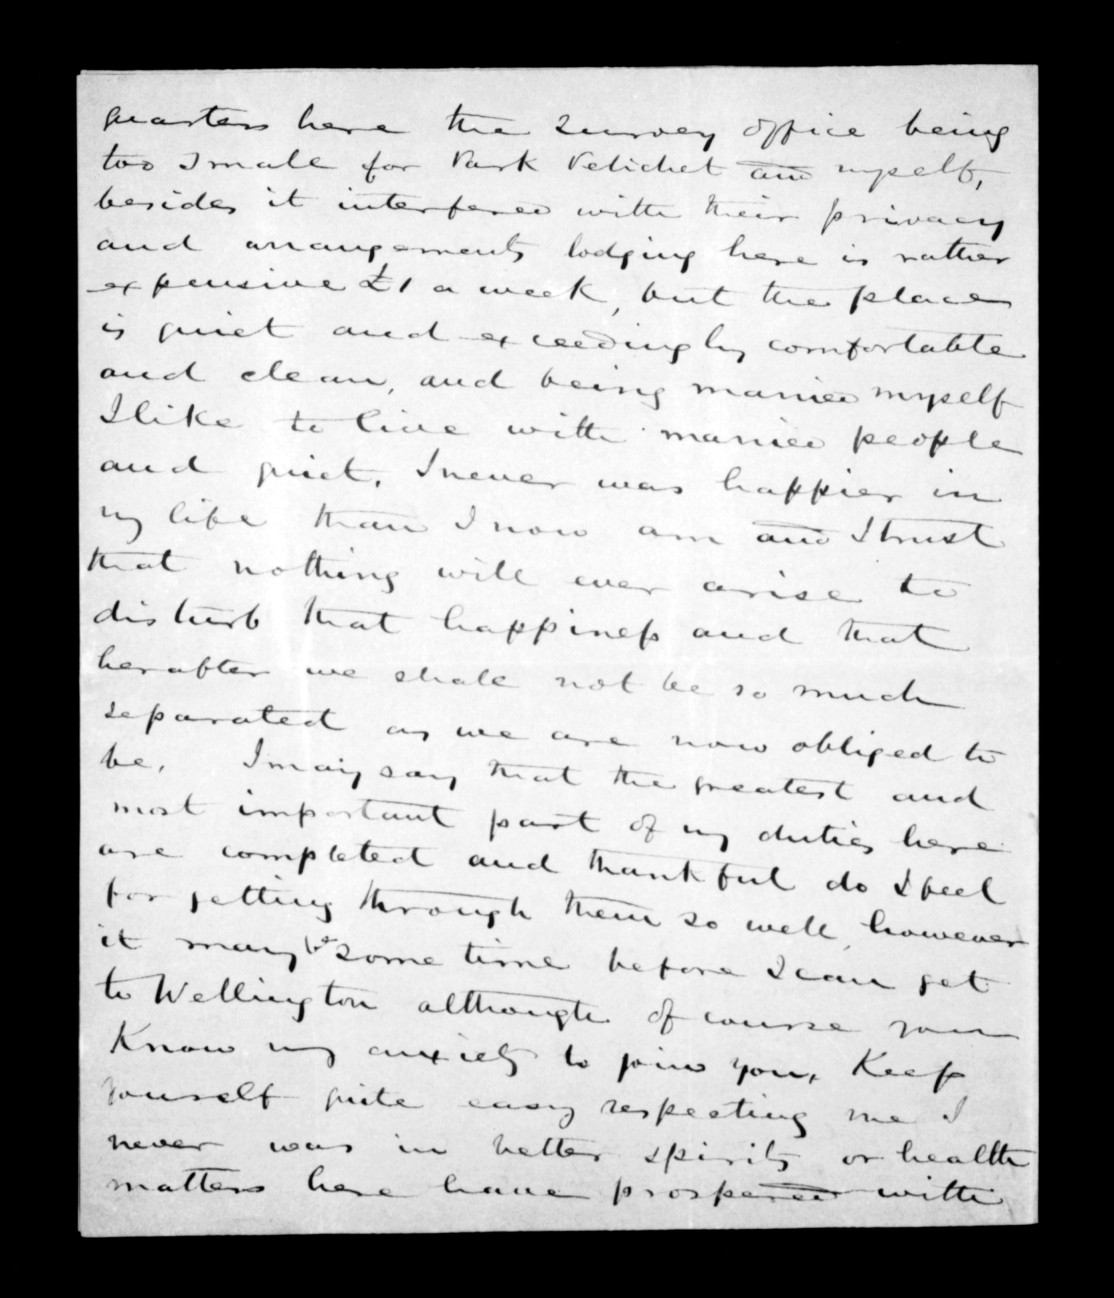 quarters here the Survey office being
too small for Park Pelichet and myself,
besides it interfered with their privacy
and arrangements lodging here is rather
expensive £1 a week, but the place
is quiet and exceedingly comfortable
and clean, and being married myself
I like to live with married people
and quiet. I never was happier in
my life than I now am and I trust
that nothing will ever arise to
disturb that happiness and that
herafter we shall not be so much
separated as we are now obliged to
be. I may say that the greatest and
most important part of my duties here
are completed and thankful do I feel
for getting through them so well, however
it may be some time before I can get
to Wellington although of course you
Know my anxiety to join you, Keep
yourself quite easy respecting me I
never was in better spirits or health
matters here have prospered with